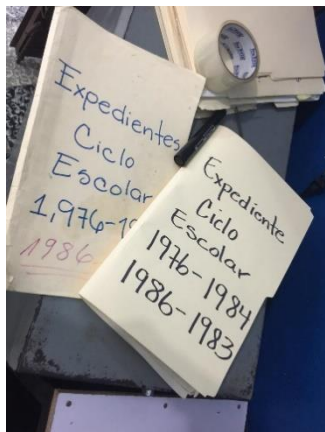 Expedientes
Ciclo
Escolar
1,976-19
1986
Expediente
Ciclo
Escolar
1976-1984
1986-1983